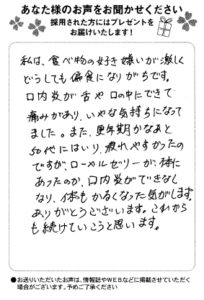 あなた様のお声をお聞かせください
採用された方にはプレゼントを
お届けいたします!
私は、食べ物の好き嫌いが激しく
どうしても偏食になりがちです。
口内炎が舌や口の中にできて
痛みがあり、いやな気持ちになって
ました。また、更年期かなあと
50代にはいり、疲れやすかったの
ですが、ローヤルゼリーが、体に
あったのか、口内炎ができなく
なり、体もかるくなった気がします。
ありがとうございます。これから
も続けていこうと思います。
●お送りいただいたお声は、情報誌やWEBなどに掲載させていただく
場合がございます。予めご了承ください。